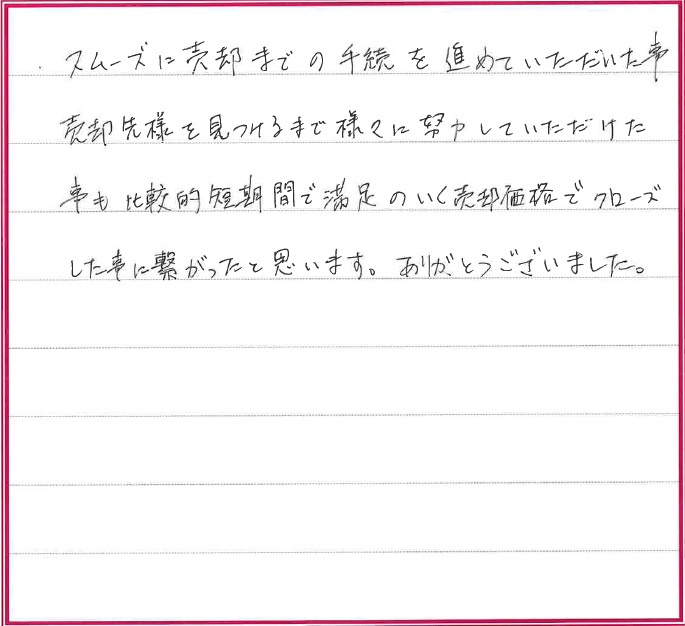 スムーズに売却までの手続を進めていただいた事
売却先様を見つけるまで様々に努力していただけた
事も比較的短期間で満足のいく売却価格でクローズ
した事に繋がったと思います。ありがとうございました。